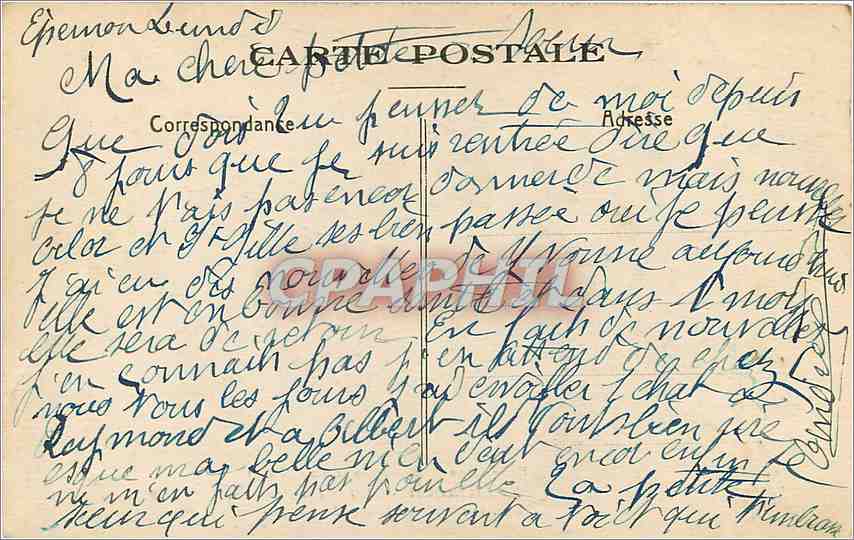 Epernon Lundi
CARTE POSTALE
Ma chere petite Soeur
Correspondance
Adresse
Que dois tu penser de moi depuis
8 jours que je suis rentrée dire que
je ne t'ais pas encor donner de mais nouvelles
et St Gille ses bien passée oui je pense
J'ai eu des nouvelles de Yvonne aujourd'hui
elle est en bonne santé dans 1 mois
elle sera de retour En fait de nouvelles
j'en connait pas j'en attend de chez
nous tous les jours j'ai envoiller 1 chat a
Raymond et a Albert ils sont bien
esque ma belle m'en veut encor enfin je
ne m'en fait pas pour elle La petite
seur qui pense souvent a toi et qui t'embrasse
Andrée
CPAPHIL